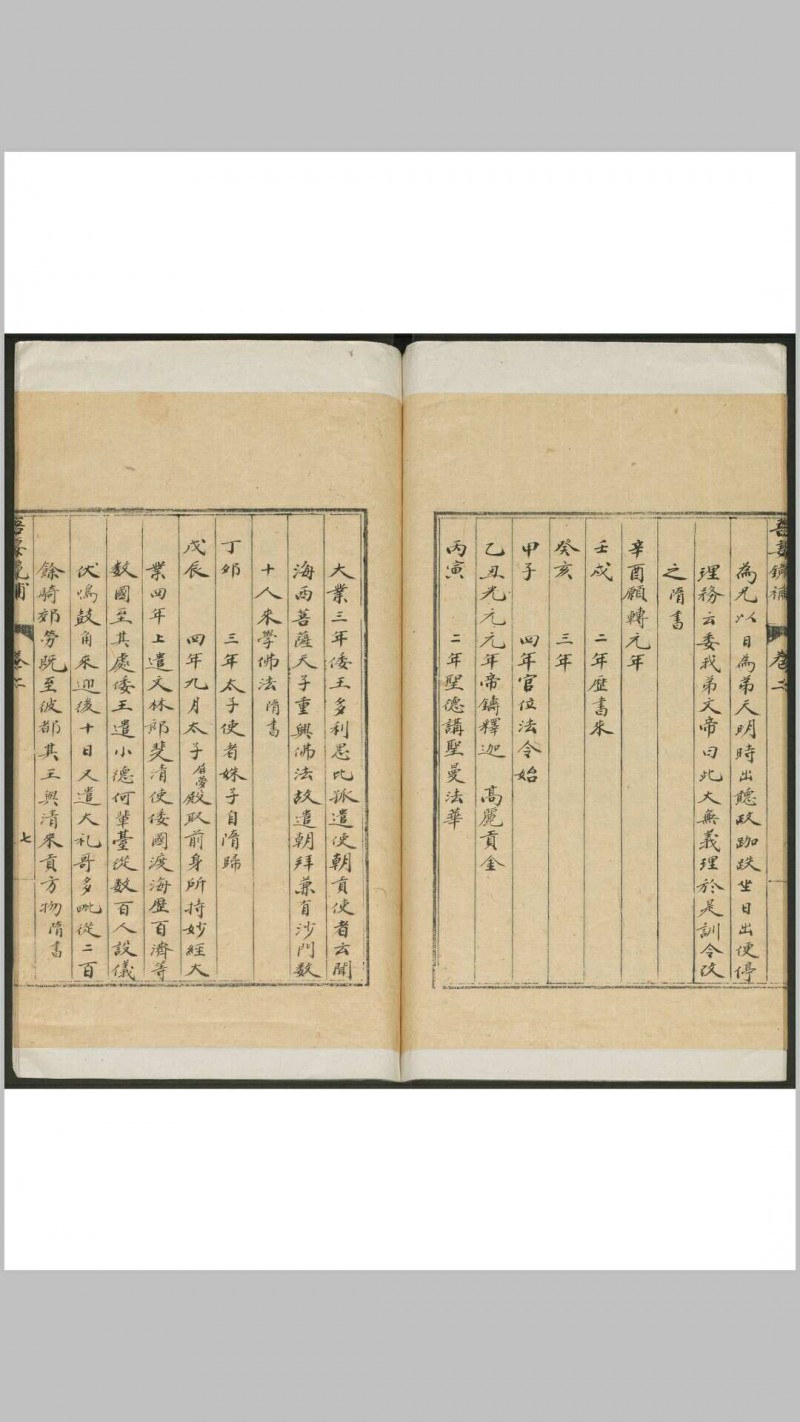 為兄以日為弟天明時出聽政跏趺坐日出便停
理務云委我弟文帝曰此大無義理於是訓令改
之隋書
辛酉願轉元年
壬戌　二年歷書來
癸亥　三年
甲子　四年官位法令始
乙丑光元元年帝鑄釋迦　高麗貢金
丙寅　二年聖德講聖曼法華
大業三年倭王多利思比孤遣使朝貢使者云聞
海西菩薩天子重興佛法故遣朝拜兼有沙門数
十人來學佛法隋書
丁卯　三年太子使者妹子自隋歸
戊辰　四年九月太子殿取前身所持妙經大
業四年上遣文林郎斐清使倭國渡海歷百濟等
数國至其處倭王遣小德何輩臺從数百人設儀
伏鳴鼓角來迎後十日又遣大礼哥多毗從二百
餘騎郊勞既至彼都其王與清來貢方物隋書
卷二
七